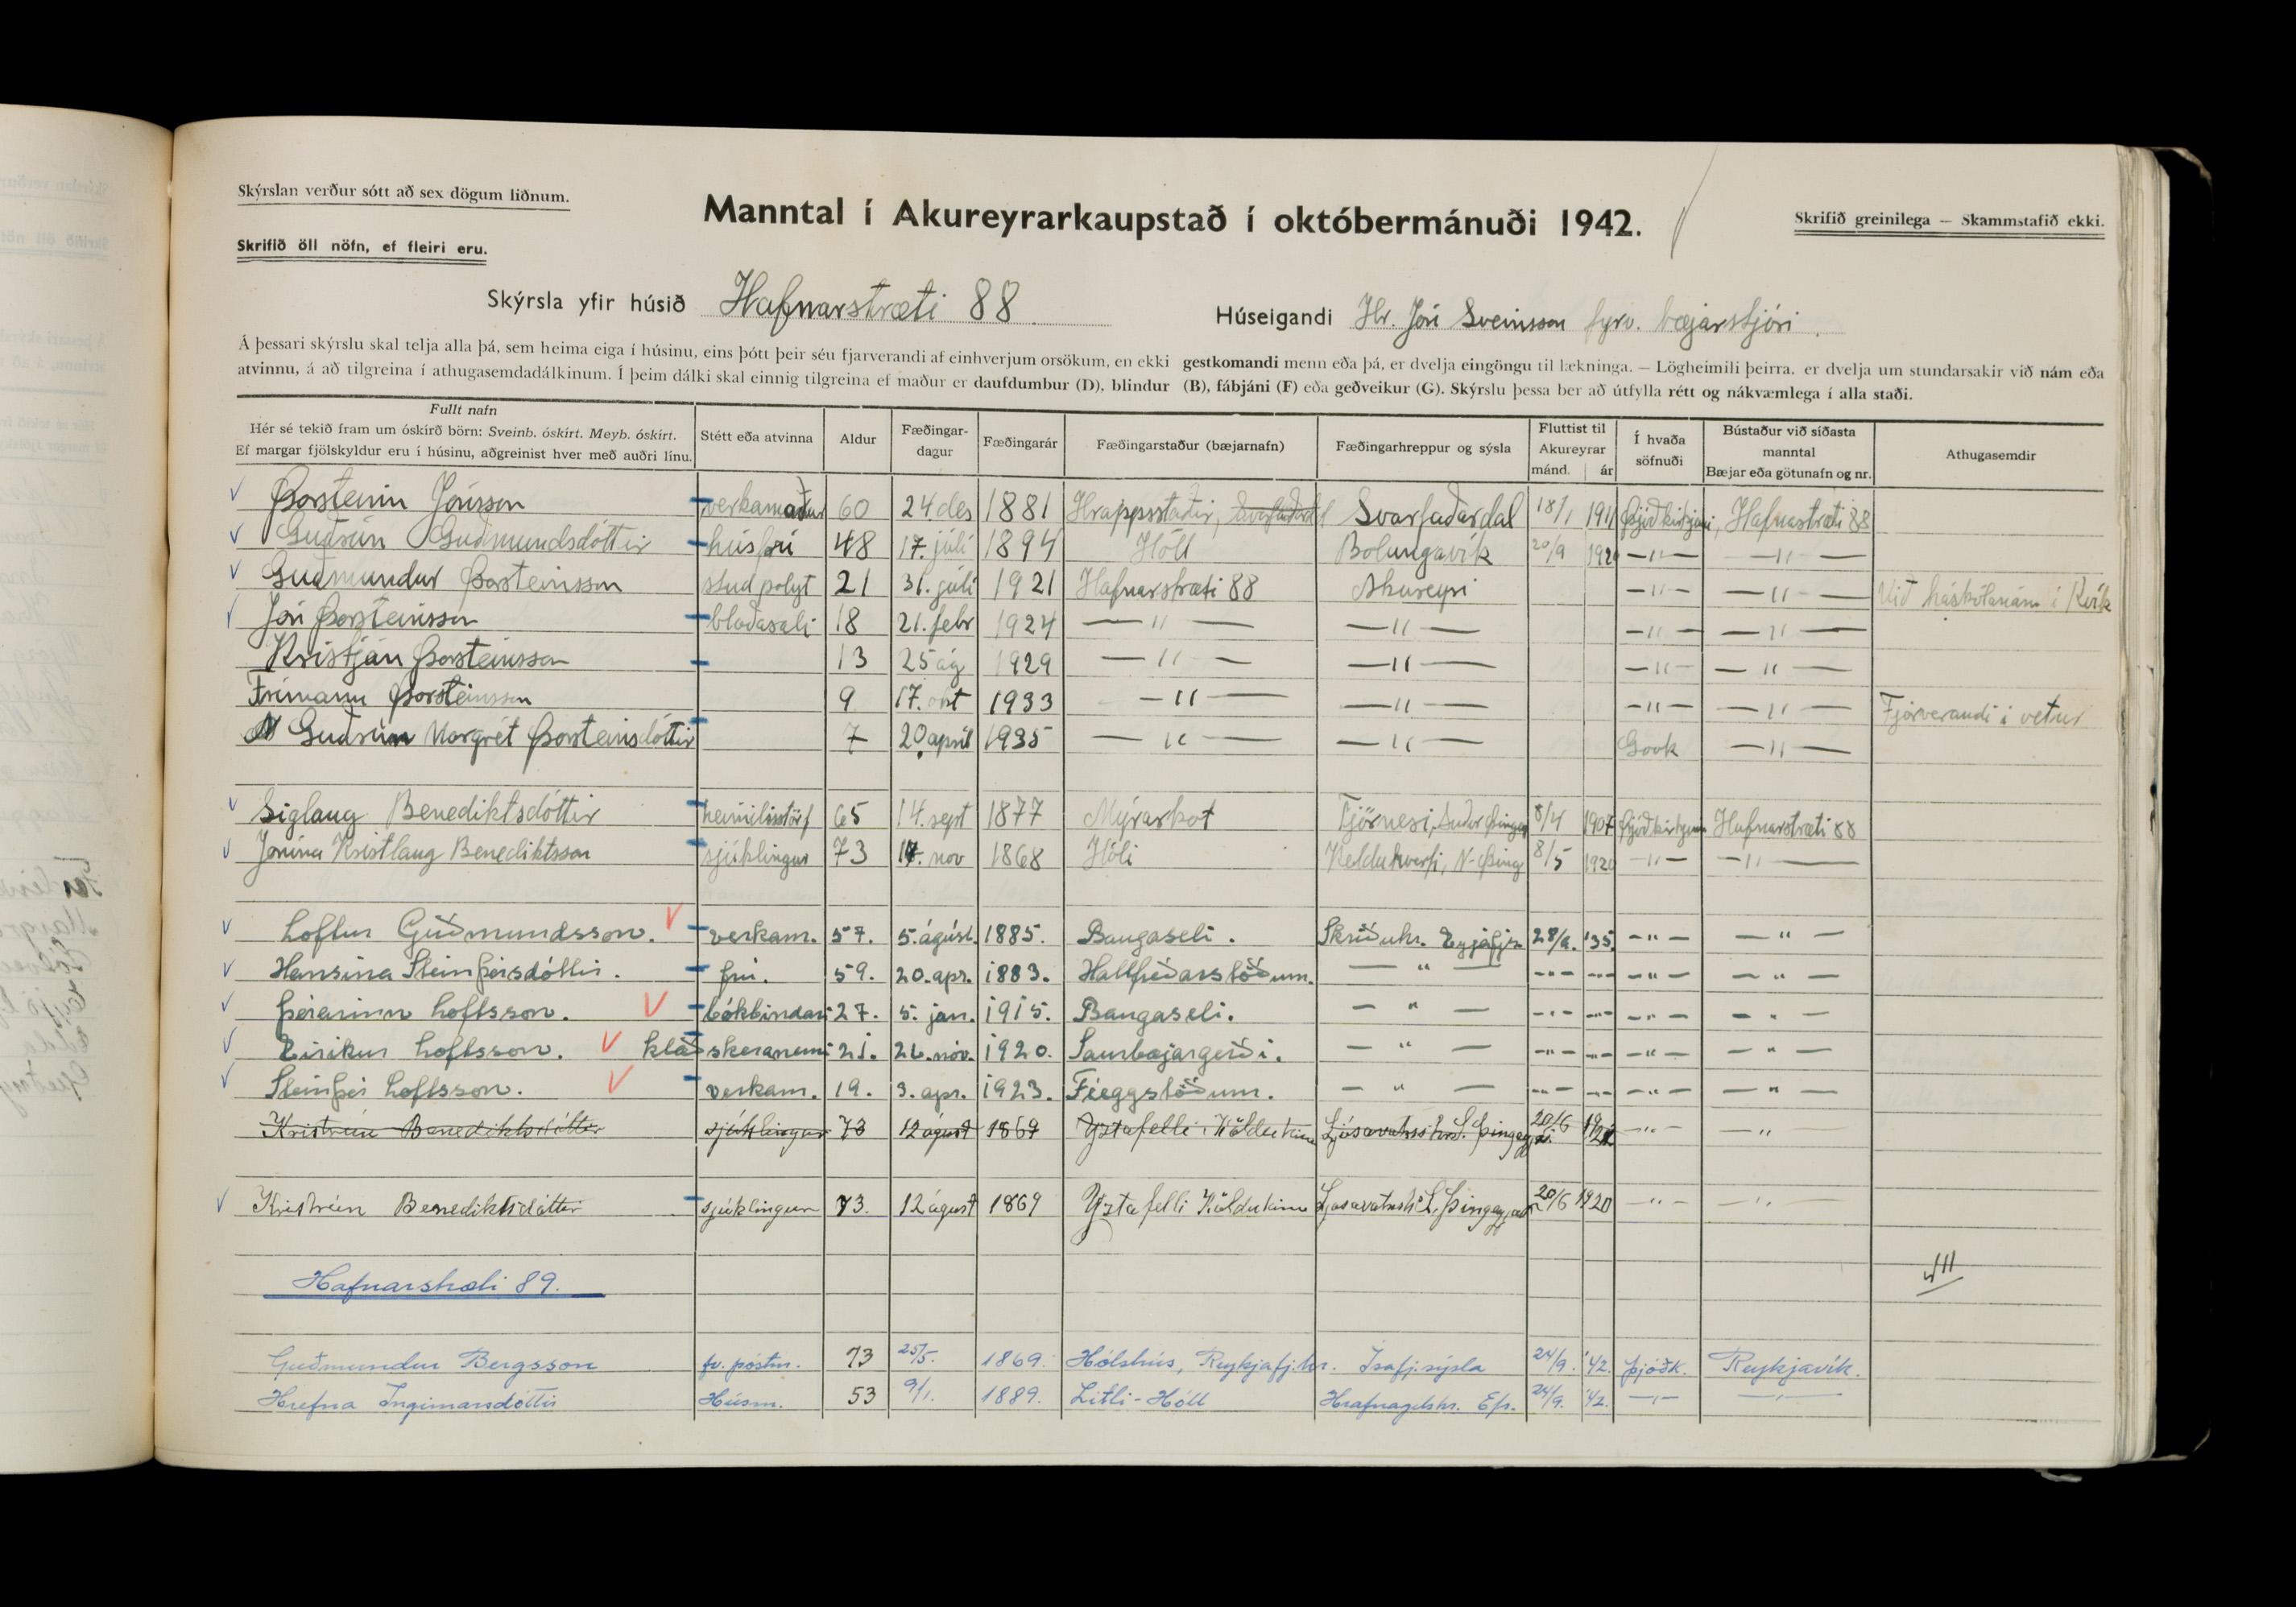 Skýrslan verður sótt að sex dögum liðnum.
Manntal í Akureyrarkaupstað í októbermánuði 1942.
Skrifið greinilega — Skammstafið ekki.
Skrifið öll nöfn, ef fleiri eru.
Skýrsla yfir húsið Hafnarstræti 88
Húseigandi Hr. Jón Sveinsson fyrv. bæjarstjóri.
Á þessari skýrslu skal telja alla þá, sem heima eiga í húsinu, eins þótt þeir séu fjarverandi af einhverjum orsökum, en ekki gestkomandi menn eða þá, er dvelja eingöngu til lækninga. — Lögheimili þeirra, er dvelja um stundarsakir við nám eða
atvinnu, á að tilgreina í athugasemdadálkinum. Í þeim dálki skal einnig tilgreina ef maður er daufdumbur (D), blindur (B), fábjáni (F) eða geðveikur (G). Skýrslu þessa ber að útfylla rétt og nákvæmlega í alla staði.
Fullt nafn
Hér sé tekið fram um óskírð börn: Sveinb. óskírt. Meyb. óskírt.
Ef margar fjölskyldur eru í húsinu, aðgreinist hver með auðri línu.
Stétt eða atvinna
Aldur
Fæðingar-
dagur
Fæðingarár
Fæðingarstaður (bæjarnafn)
Fæðingarhreppur og sýsla
Fluttist til
Akureyrar
mánd. ár
Í hvaða
söfnuði
Bústaður við síðasta
manntal
Bæjar eða götunafn og nr.
Athugasemdir
Þorsteinn Jónsson verkamaður 60 24. des 1881 Hrappsstaðir, Svarfaðardal Svarfaðardal 18/1 1911 Þjóðkirkjan, Hafnastræti 88
Guðrún Guðmundsdóttir húsfrú 48 17. júlí 1894 Hóll Bolungavík 20/9 1920 —"— —"—
Guðmundur Þorsteinsson stud polyt 21 31. júlí 1921 Hafnarstræti 88 Akureyri —"— —"— Við háskólanám í Rvík
Jón Þorsteinsson blaðasali 18 21. febr 1924 —"— —"— —"— —"—
Kristján Þorsteinsson 13 25 ág 1929 —"— —"— —"— —"—
Frímann Þorsteinsson 9 17. okt 1933 —"— —"— —"— —"— Fjórverandi í vetur
Guðrún Margrét Þorsteinsdóttir 7 20 apríl 1935 —"— —"— —"—
Siglaug Benediktsdóttir heimilisstörf 65 14. sept 1877 Mýrarkot Tjörnesi, Suður Þingey 8/4 1907 Þjóðkirkjan Hafnarstræti 88
Jónína Kristlaug Benediktsson sjúklingur 73 14. nov 1868 Hóli Kelduhverfi, N-Þing 8/5 1920 —"— —"—
Loftur Guðmundsson. verkam. 57. 5. ágúst. 1885. Baugaseli. Skriðuhr. Eyjafjs. 28/9. '35. —"— —"—
Hansína Steinþórsdóttir. frú. 59. 20. apr. 1883. Hallfríðarstöðum. —"— —"— —"— —"— —"—
Þórarinn Loftsson. bókbindari 27. 5. jan. 1915. Baugaseli. —"— —"— —"— —"— —"—
Eiríkur Loftsson. klæðskeranemi 21. 26. nóv. 1920. Saurbæjargerði. —"— —"— —"— —"— —"—
Steinþór Loftsson. verkam. 19. 3. apr. 1923. Féeggstöðum. —"— —"— —"— —"— —"—
Kristrún Benediktsdóttir sjúklingur 73 12 ágúst 1869 Yztafelli Köldukinn Ljósavatnshr. S. Þingey 20/6 —"— —"—
Kristrún Benediktsdóttir sjúklingur 73. 12 ágúst 1869 Yztafelli Köldukinn Ljosavatnshr S. Þingey 20/6 1920 —"— —"—
Hafnarstræti 89.
Guðmundur Bergsson fv. póstm. 73 25/5. 1869. Hólshús, Reykjafj.hr. Ísafj.sýsla 24/9. '42. Þjóðk. Reykjavík.
Hrefna Ingimarsdóttir Húsm. 53 9/1. 1889. Litli-Hóll Hrafnagilshr. Ef. 24/9. '42. —"— —"—